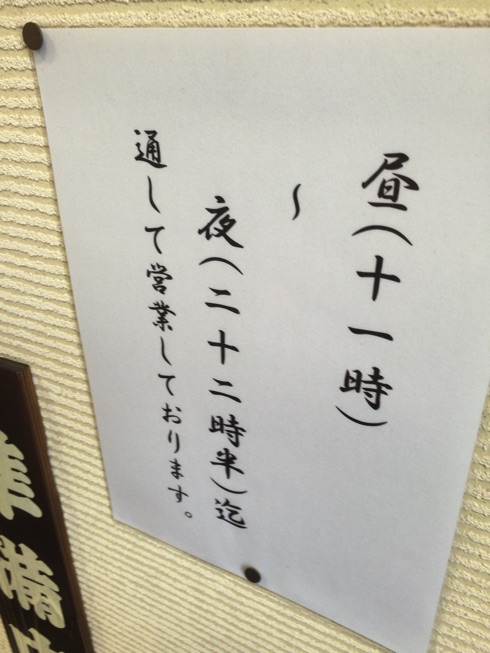 昼(十一時)
~
夜(二十二時半)迄
通して営業しております。
準備中